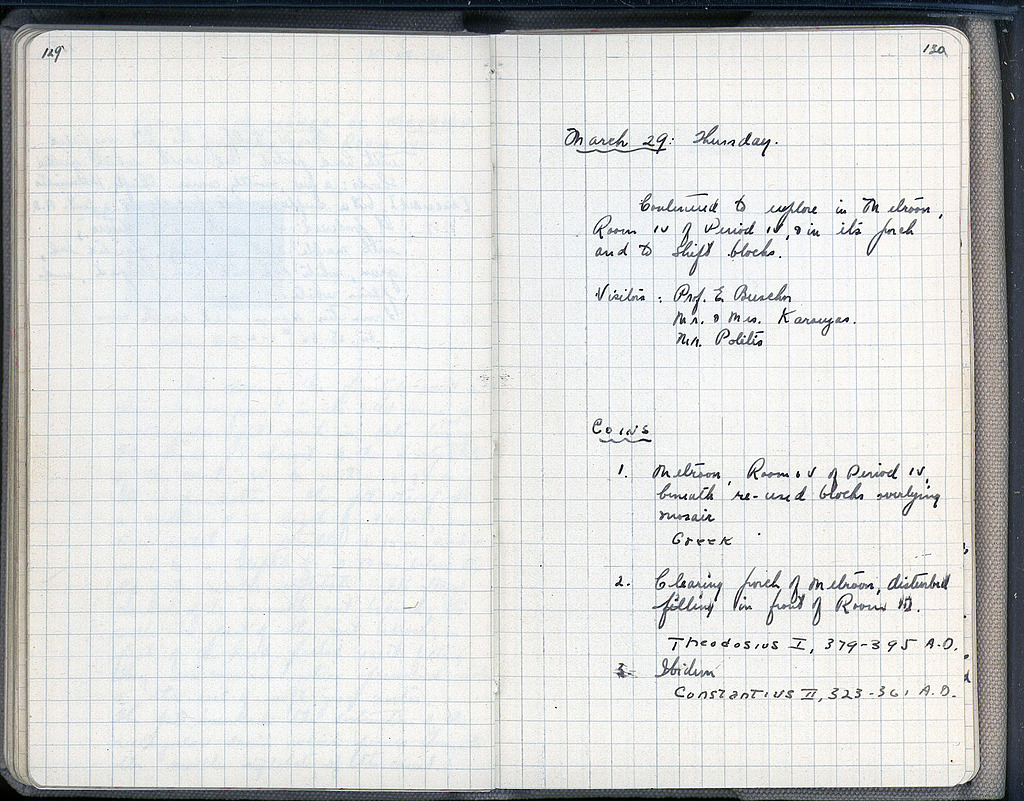 129
130
March 29: Thursday.
Continued to explore in Metroon,
Room IV of Period IV, & in its porch
and to shift blocks.
Visitors: Prof. E. Buschor
Mr. & Mrs. Karouzos.
Mr. Politis
Coins
1. Metroon, Room IV of Period IV,
beneath re-used blocks overlying
mosaic
Greek
2. Clearing porch of Metroon, disturbed
filling in front of Room
Theodosius I, 379-395 A.D.
3. Ibidem
Constantius II, 323-361 A.D.